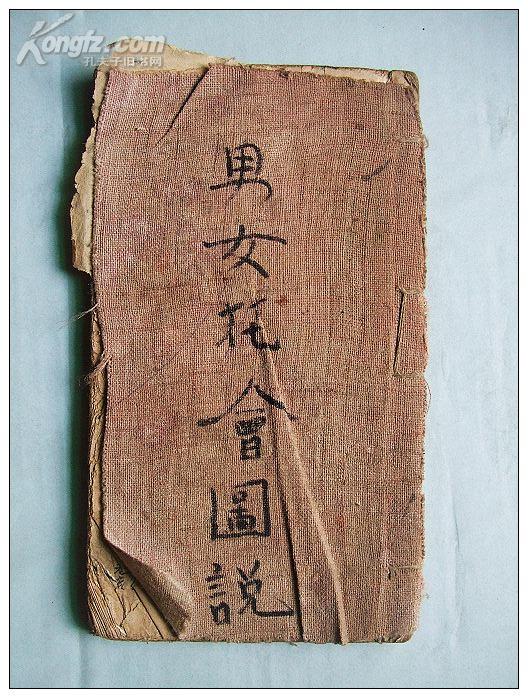 Kongfz.com
孔夫子旧书网
男女托會圖說